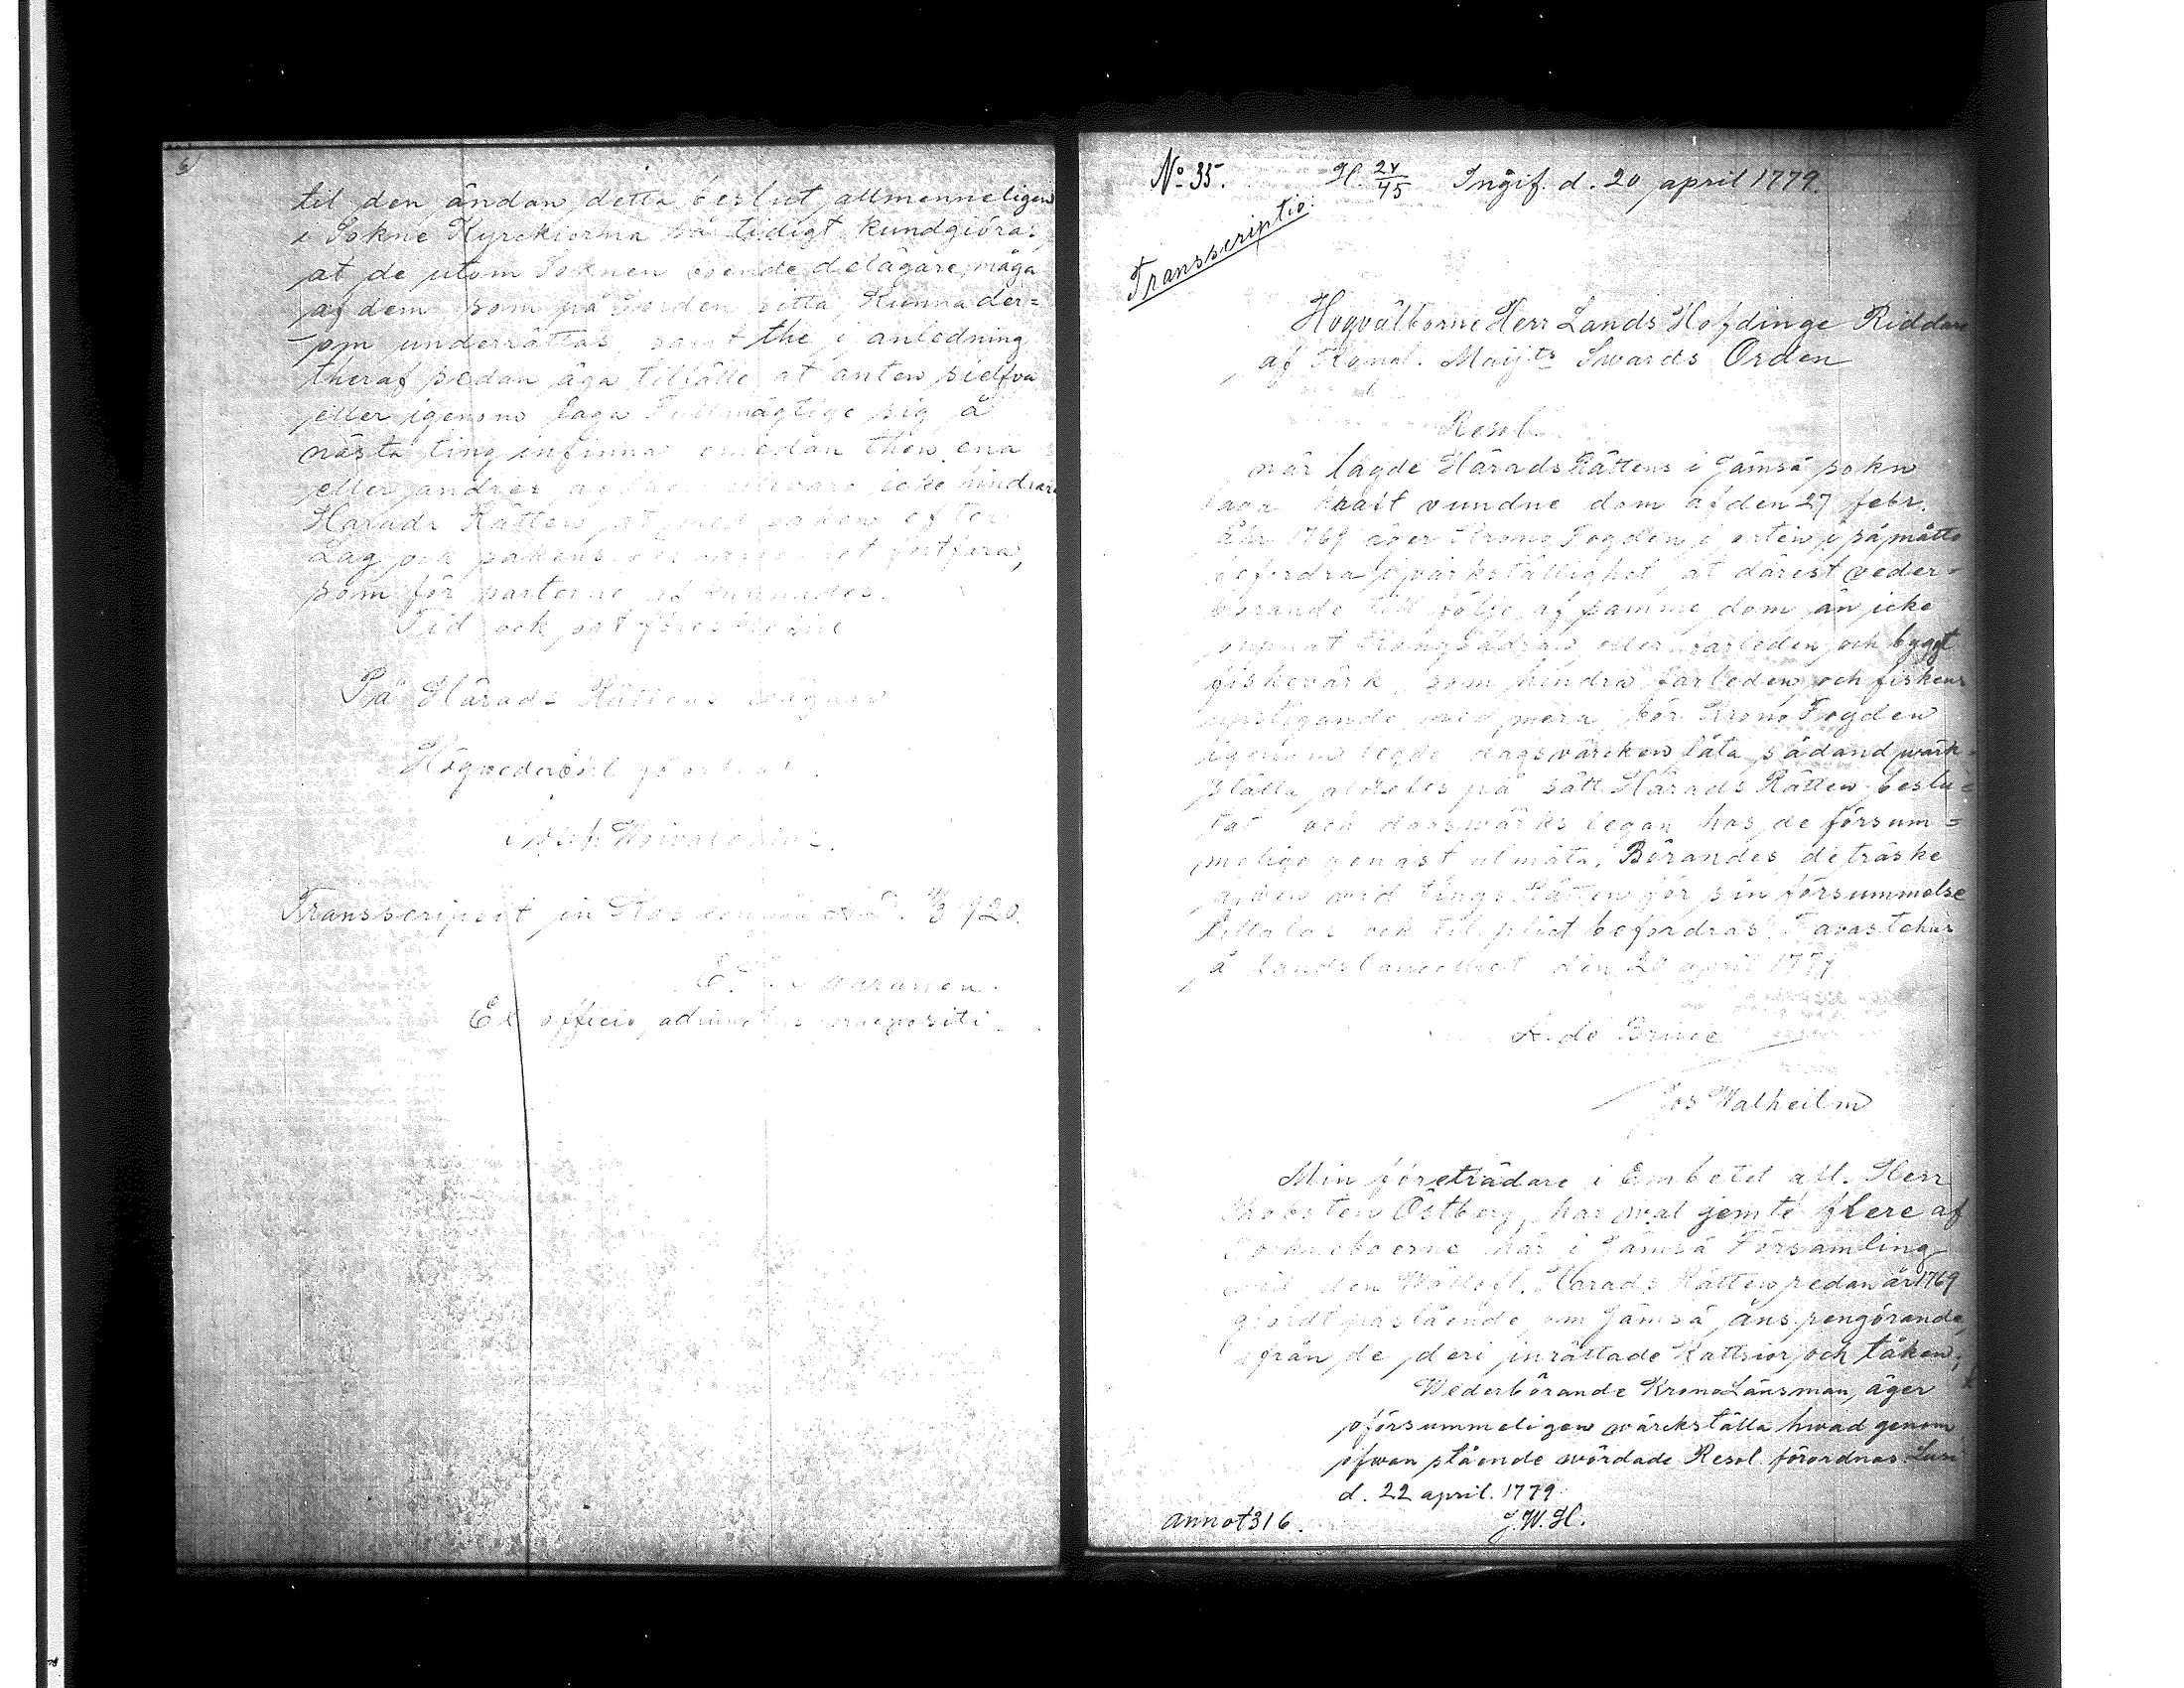 til den ändan detta beslut allmenneligen
i Sokne Kyrckiorna så tidigt kundgiöras,
at de utom Soknen boende delägare, måga
af dem som på Jorden sitta, Kunna der=
om underrättas samt the i anledning
theraf sedan äga tilfälle at anten sielfva
eller igenom laga Fullmägtige sig å
nästa ting infinna emedan then ena
eller andres icke hindrar
Härads Rätten at med saken efter
Lag och sakens fortfara,
som för parterne af kunnades.
Tid och ort föreskrefne
På Härads Rättens wägnar
Transscripsit in 1920.
E.
Ex officio, praepositi.
No 35. Ingif. d. 20 april 1779.
Transscriptio:
Högvälborne Herr Lands Höfdinge Riddare
af Kongl. Maij:ts Swärds Orden
Resol.
när lagde Härads Rättens i Jämsä sokn
laga kraft vundne dom af den 27 febr.
År 1769 äger Krono Fogden i orten i så måtto
befordra i värkställighet at därest veder=
börande till följe af samme dom än icke
öppnat Kongsådran eller farleden och byggt
fiskevärk, som hindra farleden och fiskens
upstigande med mera, bör Krono Fogden
igenom legde dagsvärcken låta sådand wärk=
ställa aldeles på sätt Härads Rätten beslu=
tat och dagswärks legan hos de försum=
melige genast utmäta. Börandes de träske
vid tings Rätten för sin försummelse
tilltalas och til plict befordras. Tavastehus
å landscancelliet den 20 april 1779
A. de Bruce
Jos Walheilm
Min företrädare i Embetet afl. Herr
Probsten Östberg, har wäl jemte flere af
Sokneboerne här i Jämsä Församling
wid den Wällofl. Härads Rätten redan år 1769
giordt påstående, om Jämsä åns rengörande,
ifrån de deri inrättade Kattsior och täken;
Wederbörande Krono Länsman, äger
oförsummeligen wärckställa hwad genom
ofwan stående wördade Resol. förordnas
d. 22 april. 1779
annot 316. J. W. H.